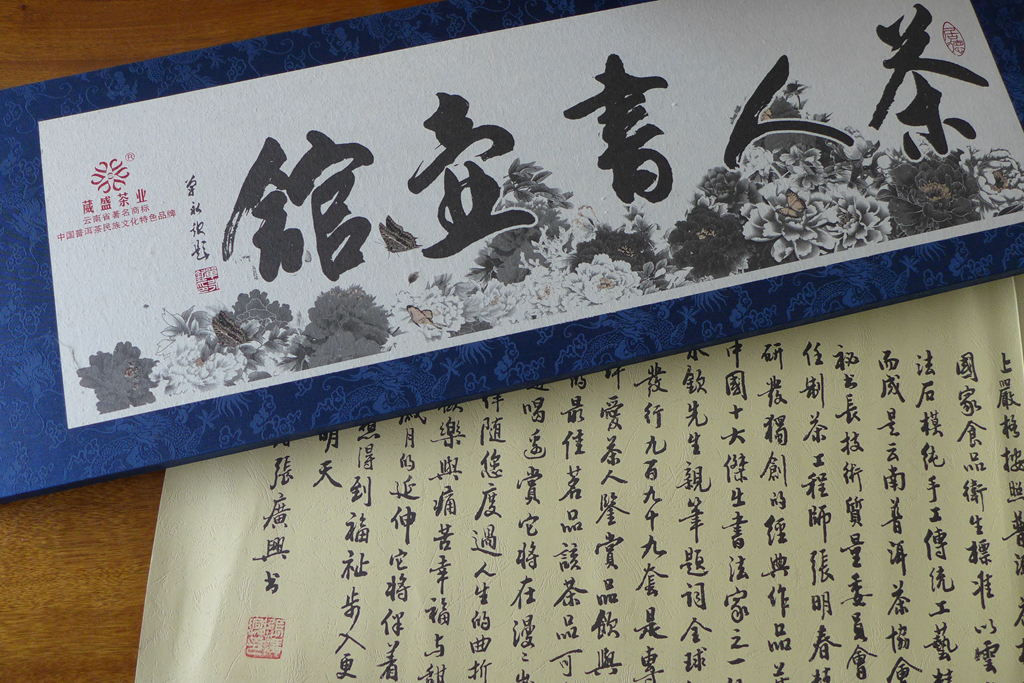 茶人書壺館
葳盛茶业
云南省著名商标
中国普洱茶民族文化特色品牌
上嚴格按照普洱
國家食品衛生標准以雲
法石模純手工傳統工藝
而成是云南普洱茶協會
秘书長技術質量委員會
任制茶工程師張明春
研發獨創的經典作品
中國十大傑出書法家之一
永欽先生親筆題詞全球
發行九百九十九套是專
愛茶人鑒賞品飲與
的最佳茗品該茶品可
喝還賞它將在漫々
伴随您度過人生的曲折
歡樂與痛苦幸福与甜
歲月的延伸它將伴着
想得到福祉步入更
明天
張廣興书